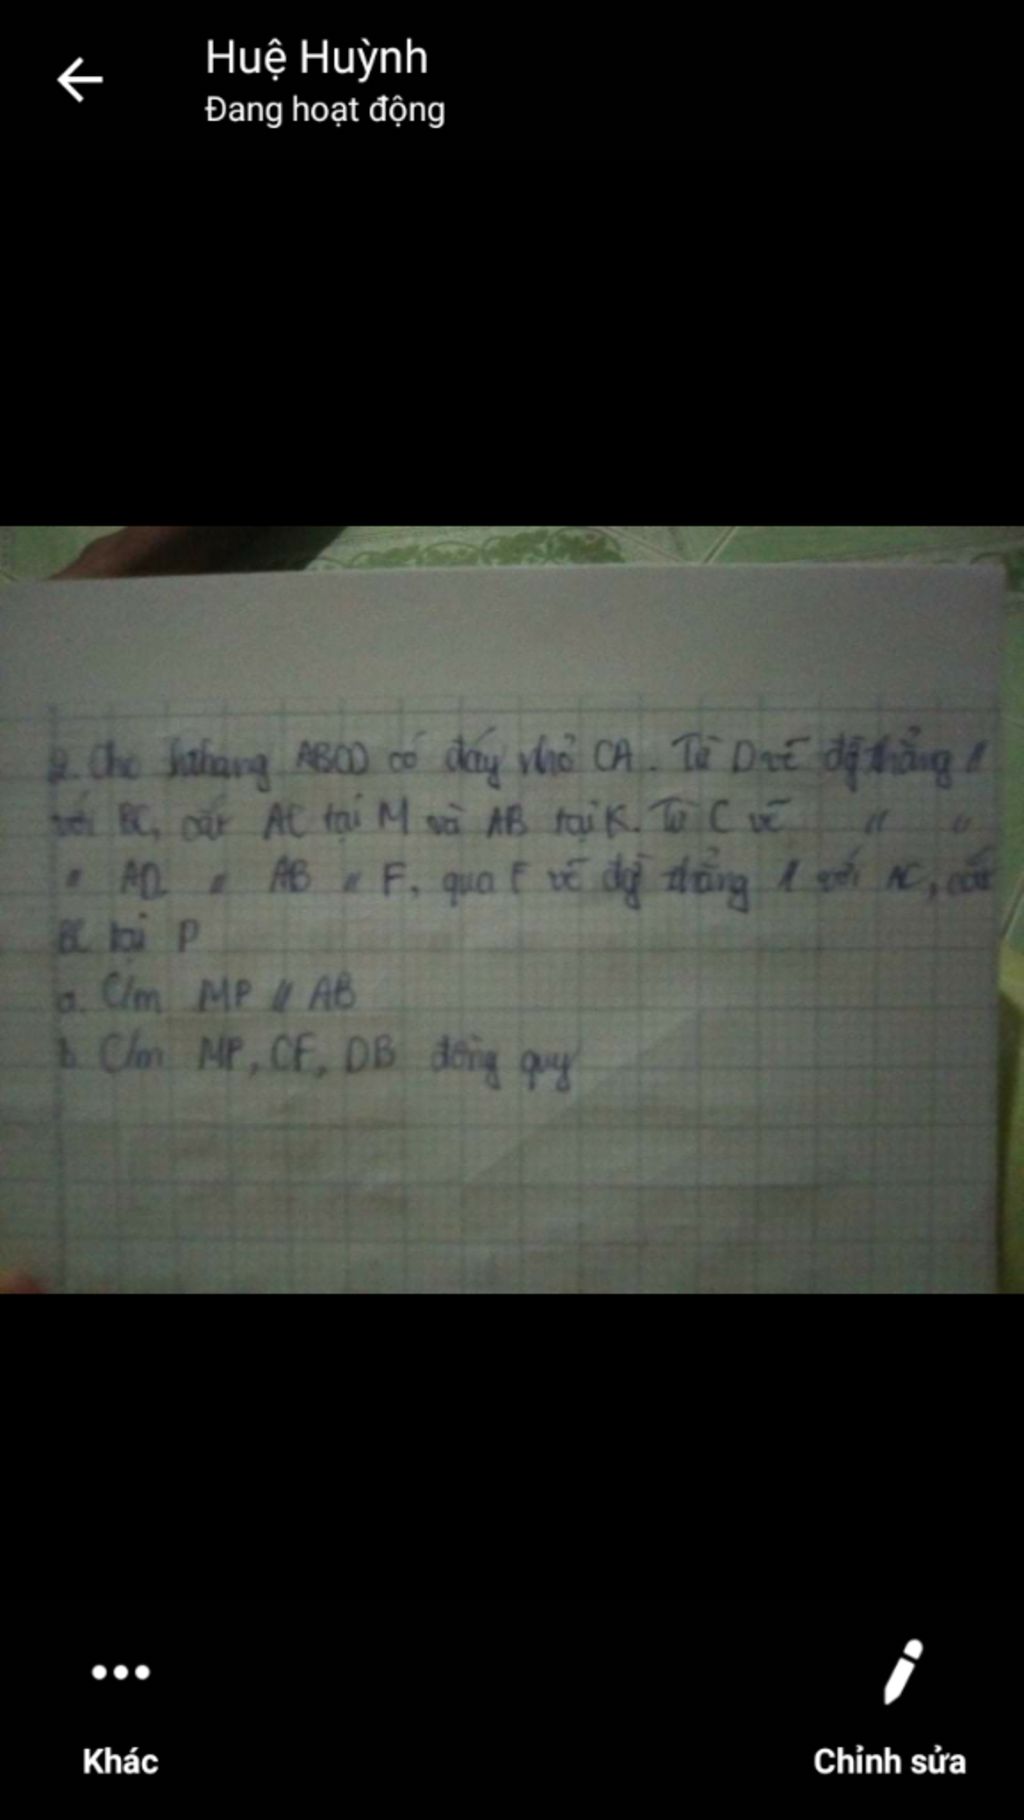 Huệ Huỳnh
Đang hoạt động
2. Cho hthang ABCD có đáy nhỏ CA. Từ D vẽ đg thẳng //
với BC, cắt AC tại M và AB tại K. Từ C vẽ " "
" AD " AB " F, qua F vẽ đg thẳng // với AC, cắt
BC tại P
a. C/m MP // AB
b. C/m MP, CF, DB đồng quy
Khác
Chỉnh sửa